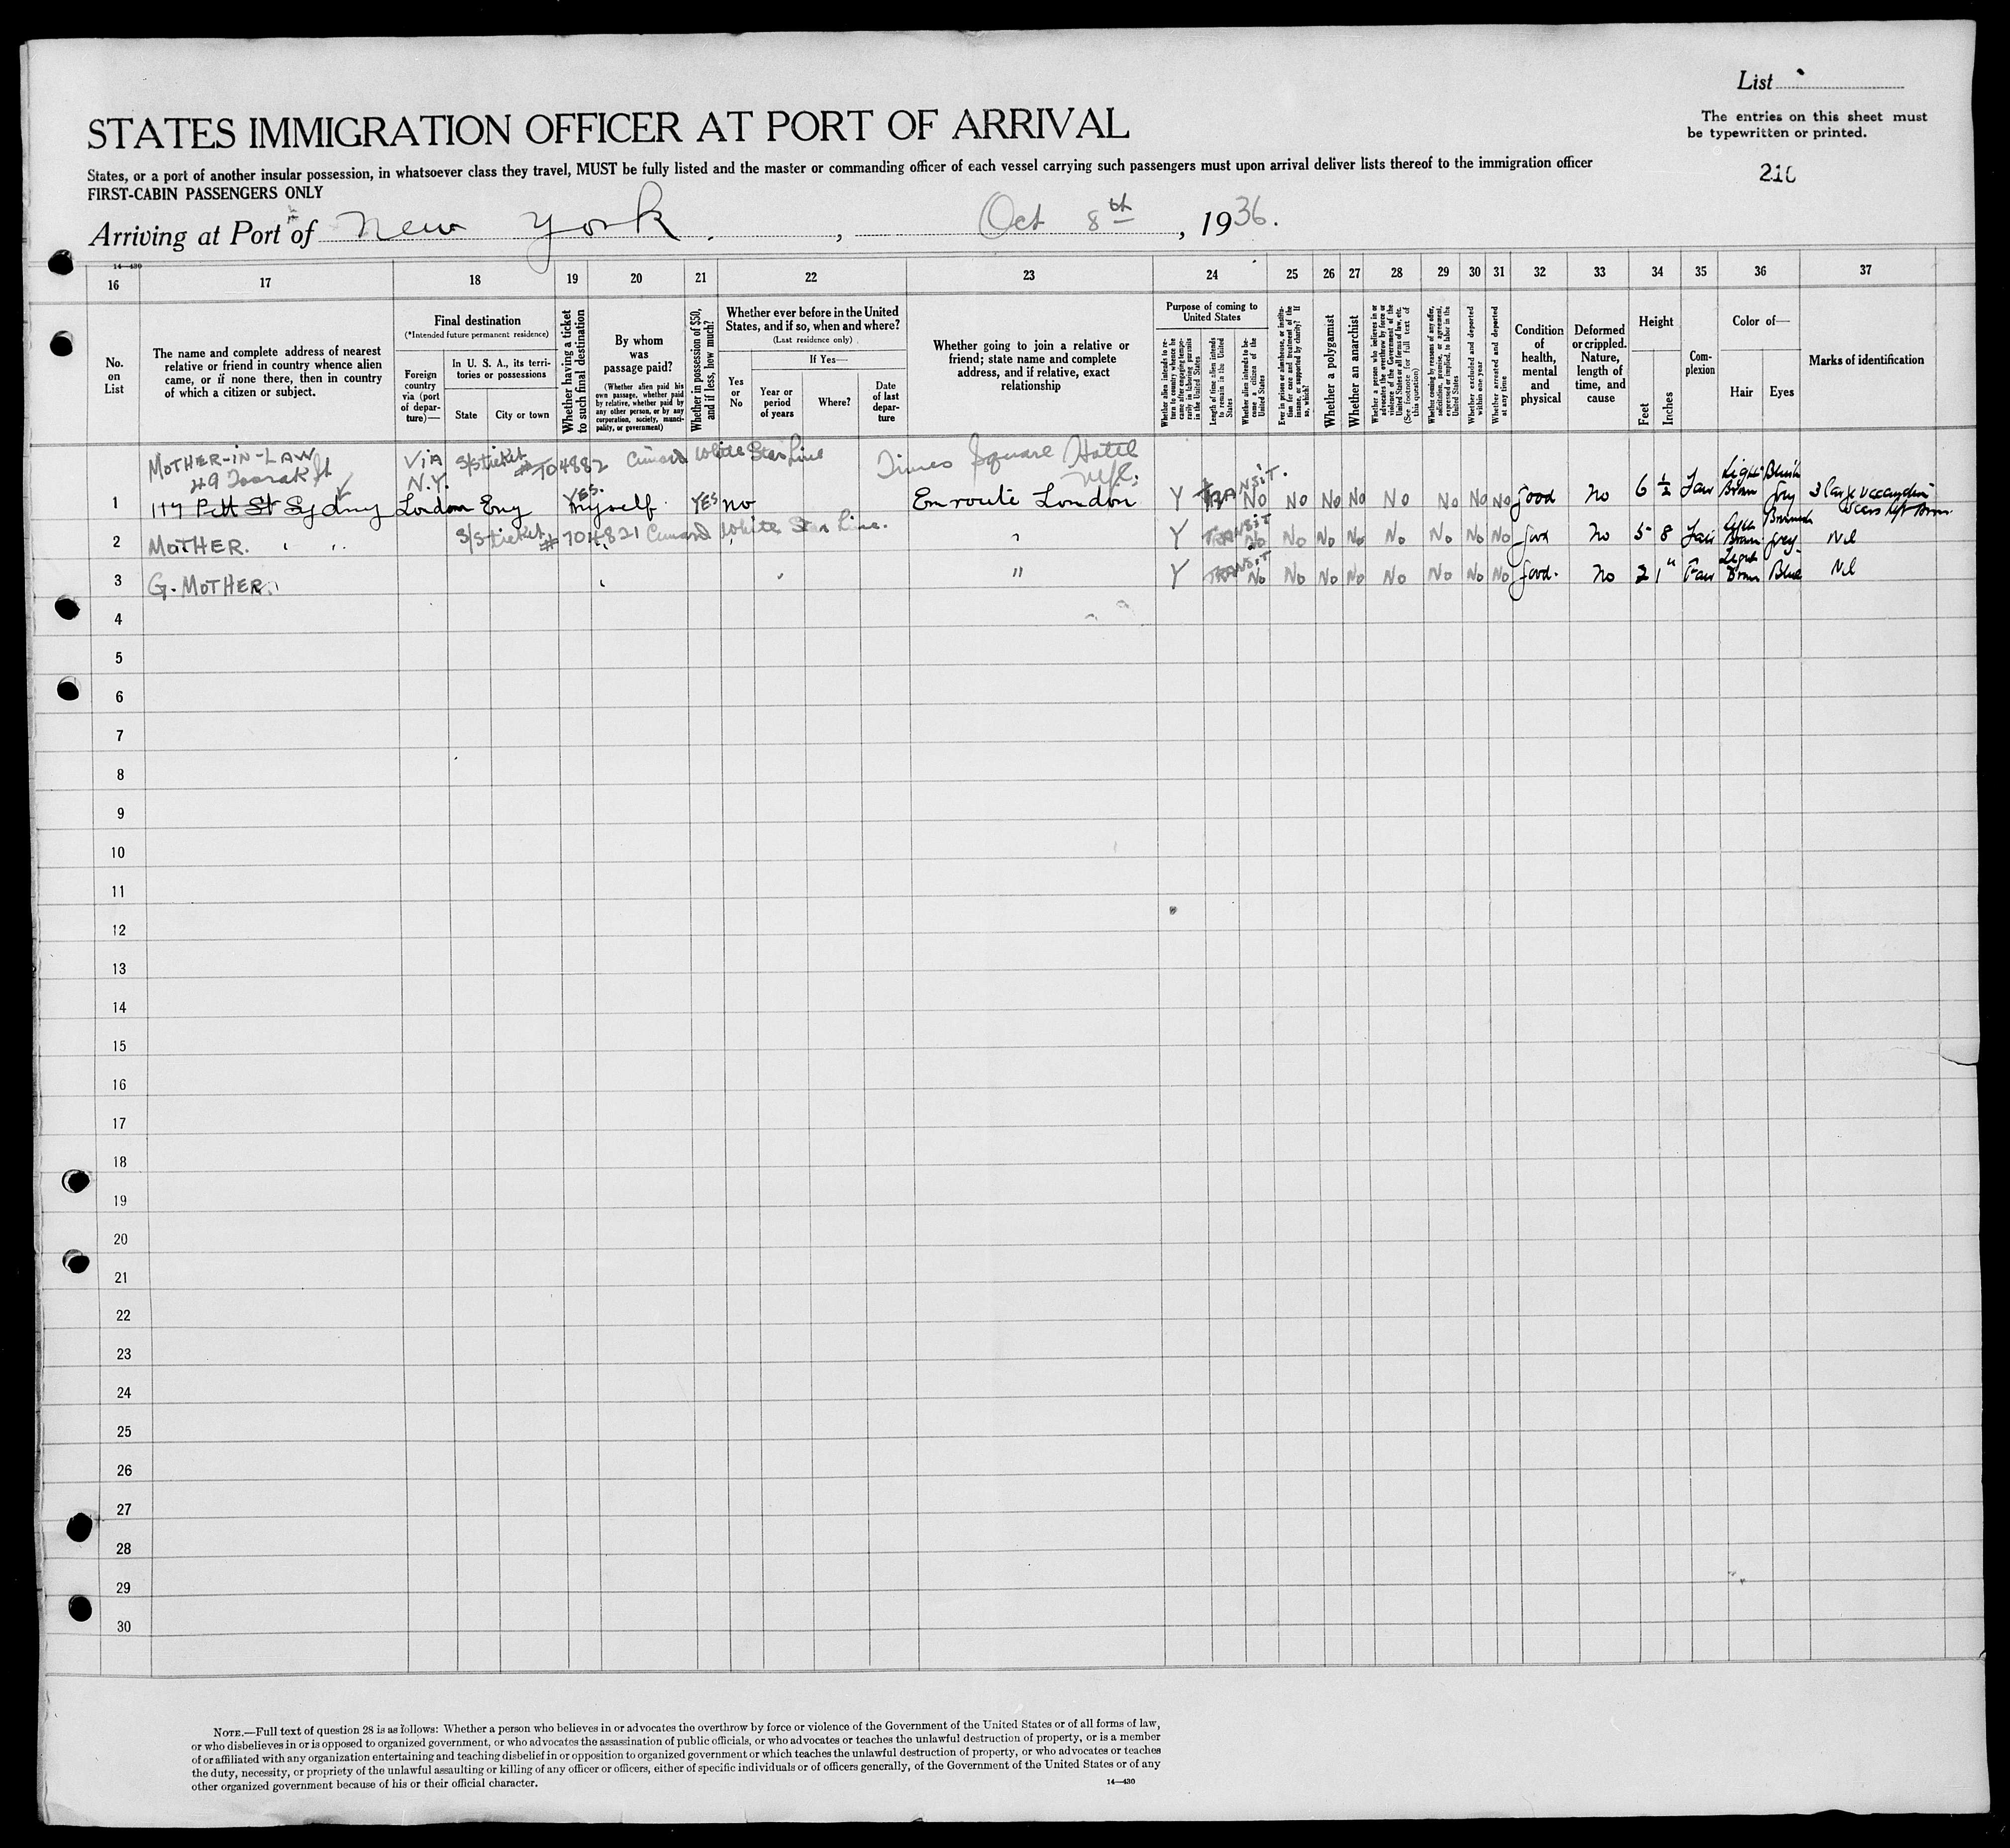 List
The entries on this sheet must
be typewritten or printed.
STATES IMMIGRATION OFFICER AT PORT OF ARRIVAL
States, or a port of another insular possession, in whatsoever class they travel, MUST be fully listed and the master or commanding officer of each vessel carrying such passengers must upon arrival deliver lists thereof to the immigration officer
FIRST-CABIN PASSENGERS ONLY
Arriving at Port of New York, Oct 8th, 1936.
14—430
16 17 18 19 20 21 22 23 24 25 26 27 28 29 30 31 32 33 34 35 36 37
No. on List
The name and complete address of nearest
relative or friend in country whence alien
came, or if none there, then in country
of which a citizen or subject.
Final destination
(*Intended future permanent residence)
Foreign country via (port of departure)—
In U. S. A., its territories or possessions
State
City or town
Whether having a ticket to such final destination
By whom was passage paid?
(Whether alien paid his own passage, whether paid by relative, whether paid by any other person, or by any corporation, society, municipality, or government)
Whether in possession of $50, and if less, how much?
Whether ever before in the United
States, and if so, when and where?
(Last residence only)
Yes or No
If Yes—
Year or period of years
Where?
Date of last departure
Whether going to join a relative or
friend; state name and complete
address, and if relative, exact
relationship
Purpose of coming to United States
Whether alien intends to return to country whence he came after engaging temporarily in laboring pursuits in the United States
Length of time alien intends to remain in the United States
Whether alien intends to become a citizen of the United States
Ever in prison or almshouse, or institution for care and treatment of the insane, or supported by charity? If so, which?
Whether a polygamist
Whether an anarchist
Whether a person who believes in or advocates the overthrow by force or violence of the Government of the United States or all forms of law, etc. (See footnote for full text of this question)
Whether coming by reasons of any offer, solicitation, promise, or agreement, expressed or implied, to labor in the United States
Whether excluded and deported within one year
Whether arrested and deported at any time
Condition of health, mental and physical
Deformed or crippled. Nature, length of time, and cause
Height
Feet
Inches
Complexion
Color of—
Hair
Eyes
Marks of identification
MOTHER-IN-LAW Via S/S ticket #704882 Cunard White Star Line Times Square Hotel
49 Toorak N.Y. YES. TRANSIT. Light Bluish
1 Pitt St Sydney London Eng Myself YES no Enroute London Y No No No No No No No No Good No 6 ½ Fair Brown Grey 3 large
2 MOTHER. S/S ticket #704821 Cunard White Star Line. Y TRANSIT No No No No No No No No Good No 5 8 Fair Light Brown Grey Nil
3 G. MOTHER. " Y TRANSIT No No No No No No No No Good. No 2 1" Fair Light Brown Blue Nil
4
5
6
7
8
9
10
11
12
13
14
15
16
17
18
19
20
21
22
23
24
25
26
27
28
29
30
NOTE.—Full text of question 28 is as follows: Whether a person who believes in or advocates the overthrow by force or violence of the Government of the United States or of all forms of law,
or who disbelieves in or is opposed to organized government, or who advocates the assassination of public officials, or who advocates or teaches the unlawful destruction of property, or is a member
of or affiliated with any organization entertaining and teaching disbelief in or opposition to organized government or which teaches the unlawful destruction of property, or who advocates or teaches
the duty, necessity, or propriety of the unlawful assaulting or killing of any officer or officers, either of specific individuals or of officers generally, of the Government of the United States or of any
other organized government because of his or their official character.
14—430